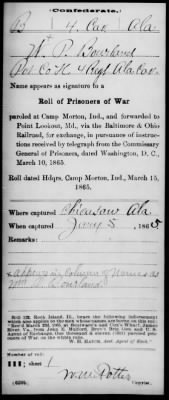 Confederate.
B | 4. Cav. | Ala.
W. P. Bowland
Pvt Co K 4 Regt Ala Cav.
Name appears as signature to a
Roll of Prisoners of War
paroled at Camp Morton, Ind., and forwarded to
Point Lookout, Md., via the Baltimore & Ohio
Railroad, for exchange, in pursuance of instructions
received by telegraph from the Commissary
General of Prisoners, dated Washington, D. C.,
March 10, 1865.
Roll dated Hdqrs. Camp Morton, Ind., March 15,
1865.
Where captured Chicasaw Ala.
When captured Jany 5, 1865
Remarks:
appears in Column of Names as
Number of roll:
111; sheet 1
W. M. Potter
Copyist.